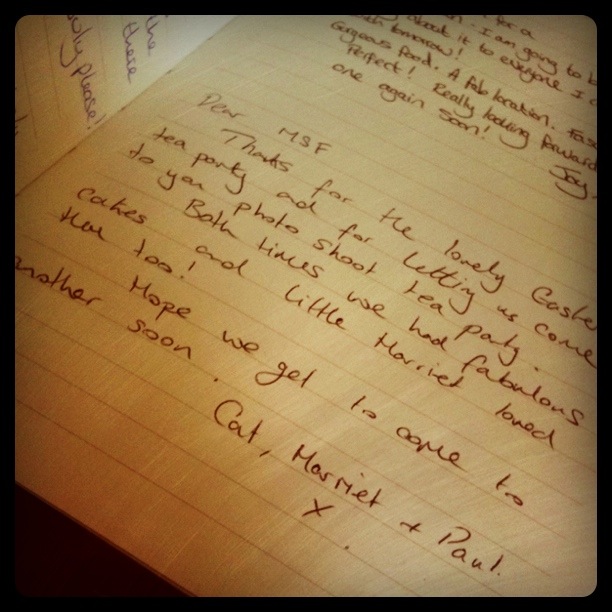 the
these
please!
for a
. I am going to b
about it to everyone I c
tomorrow!
Gorgeous food. A fab location.
Perfect! Really looking forward
one again soon!
Joy
Dear MSF
Thanks for the lovely Easter
tea party and for letting us come
to you photo shoot tea party.
Both times we had fabulous
cakes and little Harriet loved
them too!
Hope we get to come to
another soon.
Cat, Harriet + Paul.
x.